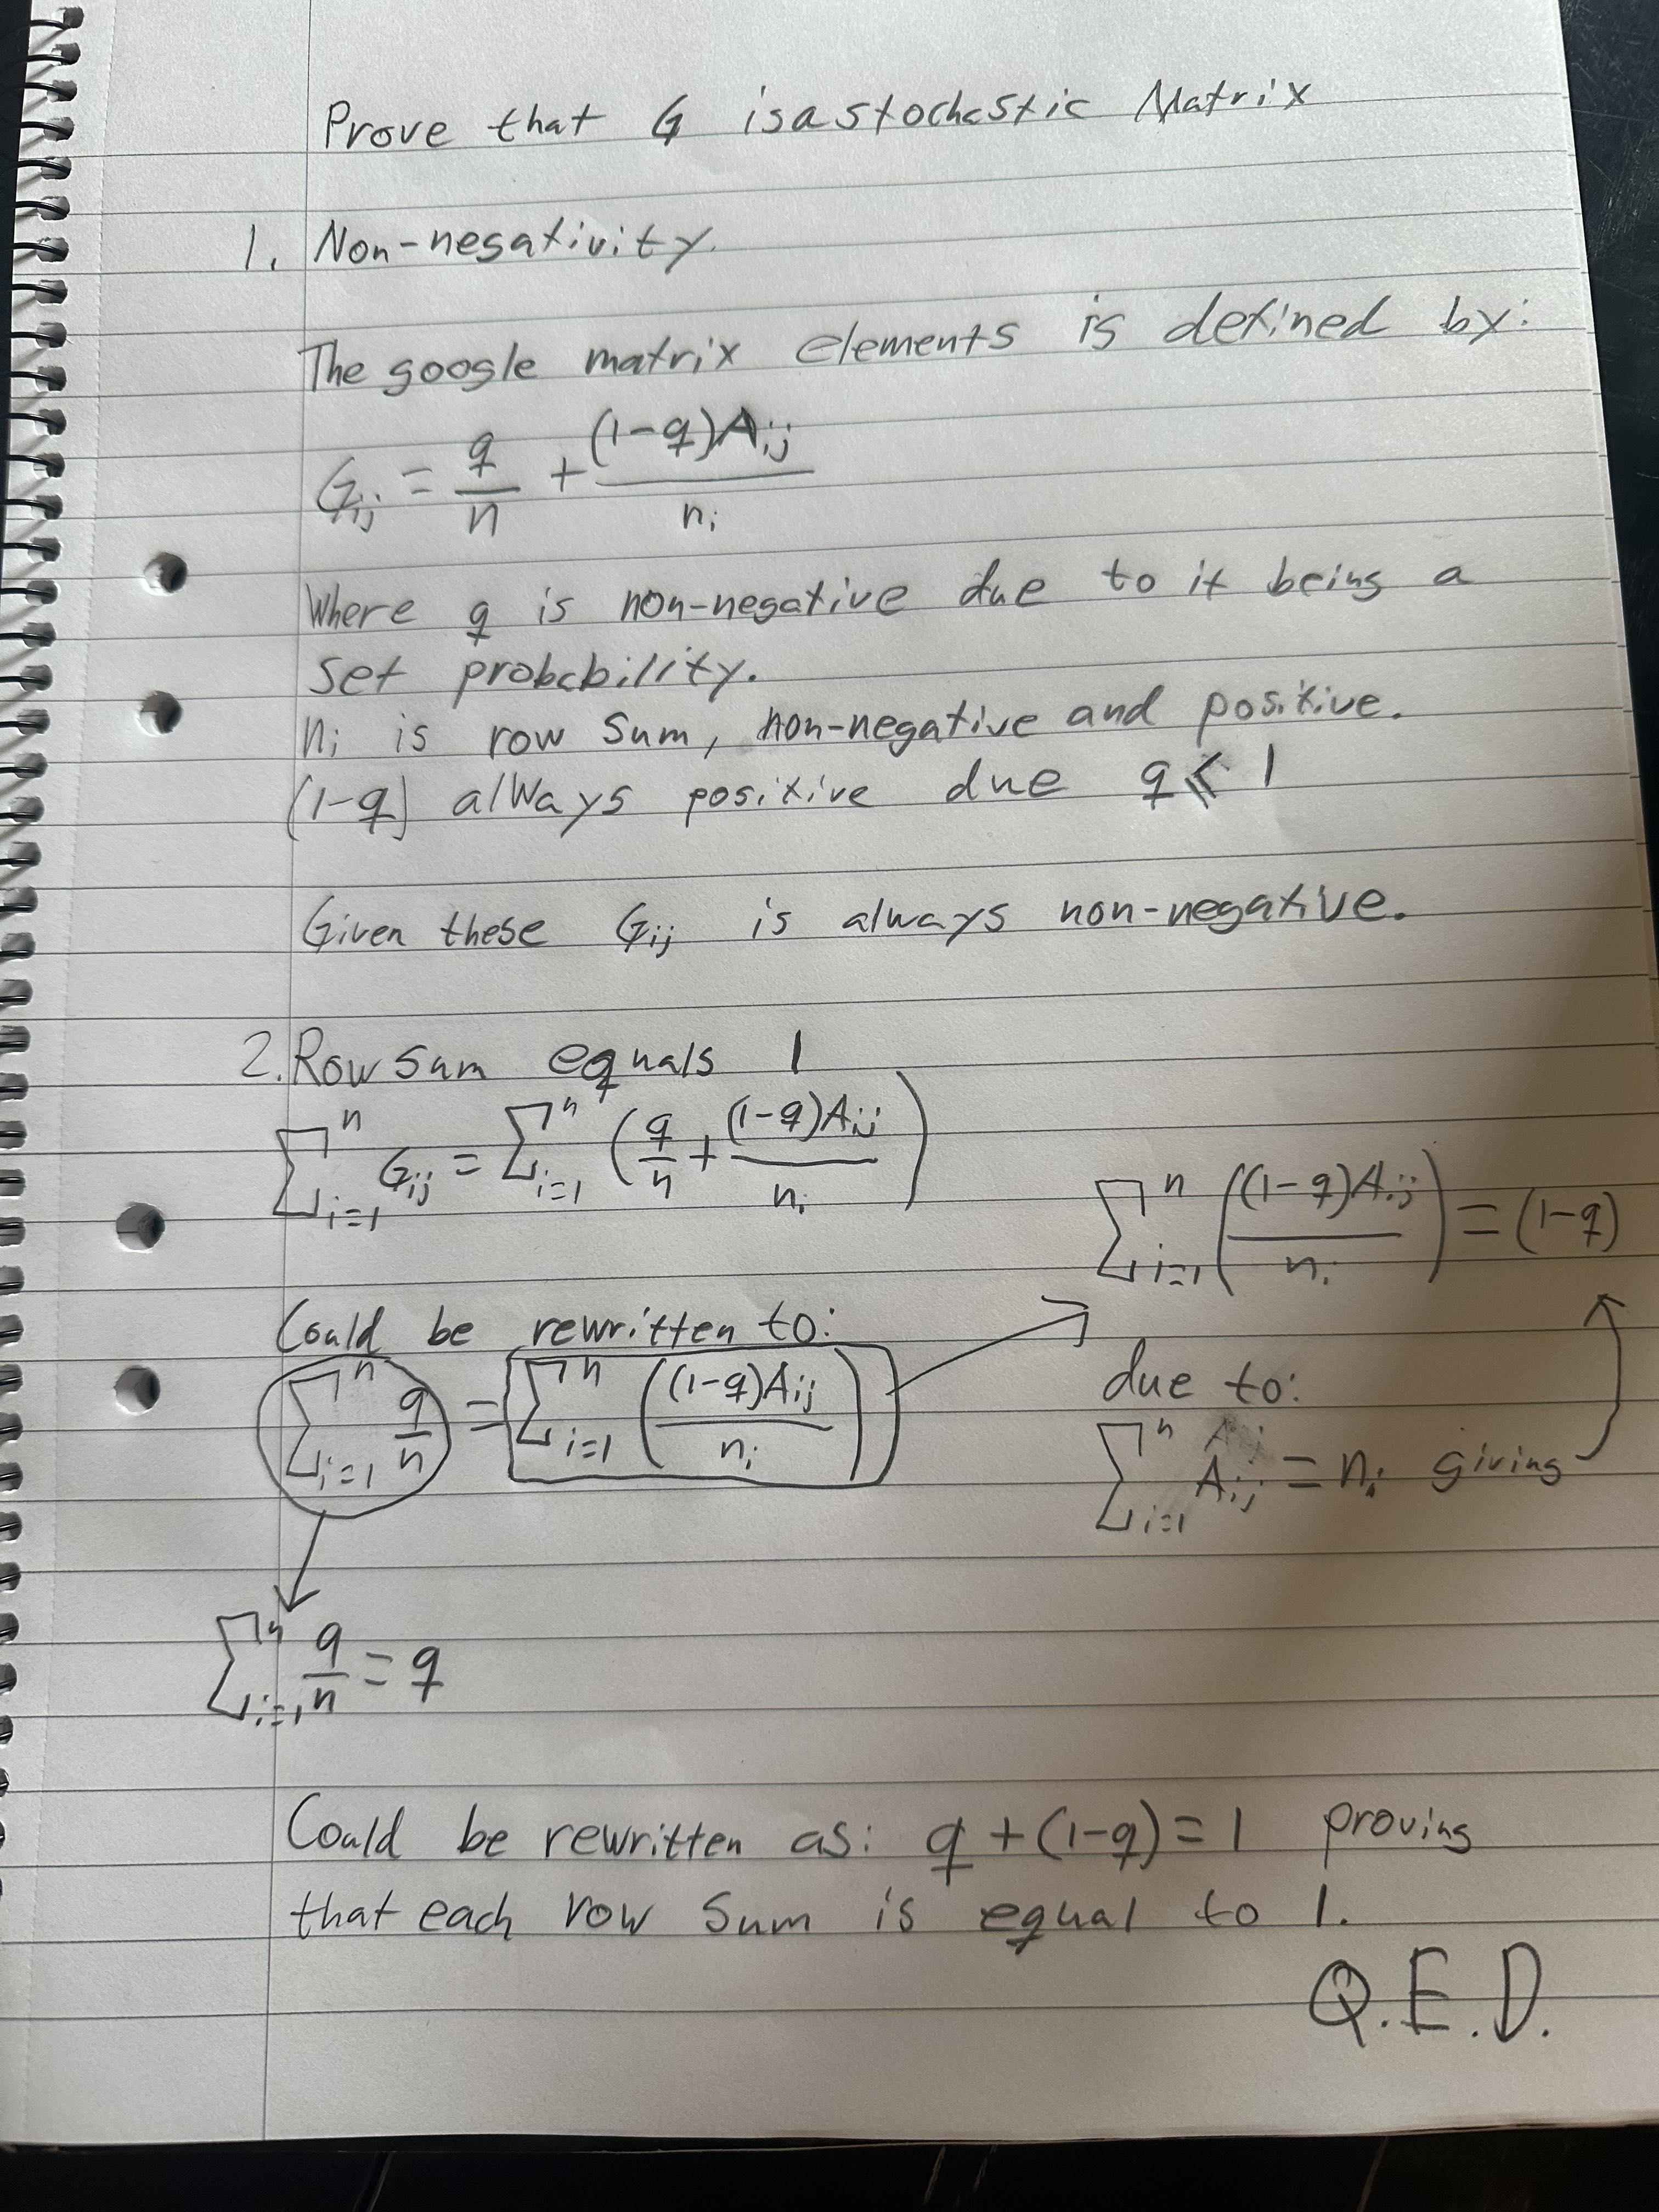 Prove that G is a stochastic Matrix
1. Non-negativity.
The google matrix elements is defined by:
G_ij = q/n + (1-q)A_ij / n_i
Where q is non-negative due to it being a
set probability.
n_i is row sum, non-negative and positive.
(1-q) always positive due q ≤ 1
Given these G_ij is always non-negative.
2. Row sum equals 1
∑_{i=1}^n G_ij = ∑_{i=1}^n (q/n + (1-q)A_ij / n_i)
Could be rewritten to:
∑_{i=1}^n q/n = ∑_{i=1}^n ((1-q)A_ij / n_i)
∑_{i=1}^n ((1-q)A_ij / n_i) = (1-q)
due to:
∑_{i=1}^n A_ij = n_i giving
∑_{i=1}^n q/n = q
Could be rewritten as: q + (1-q) = 1 proving
that each row sum is equal to 1.
Q.E.D.